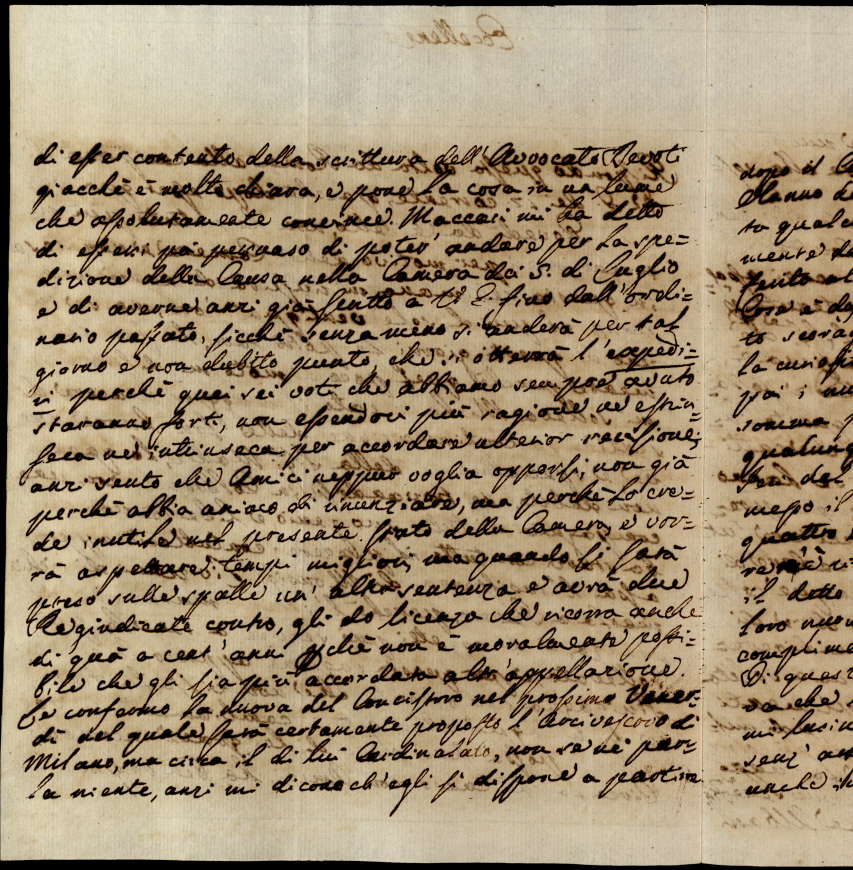 di esser contento della scrittura dell' Avvocato Devoti
giacchè è molto chiara, e pone la cosa in un lume
che assolutamente convince. Maccari mi ha detto
di essersi poi persuaso di poter' andare per la spe=
dizione della Causa nella Camera dei 5. di Luglio
e di averne anzi già scritto a fino dall' ordi=
nario passato, sicchè senza meno si anderà per tal
giorno e non dubito punto, che si otterrà l' expedi=
ri perchè quei sei voti che abbiamo sempre avuto
staranno forti, non essendoci più ragione nè estrin=
seca nè intrinseca per accordare ulterior recisione;
anzi sento che Amici neppur voglia opporsi, non già
perchè abbia animo di rinunziare, ma perchè lo cre=
de inutile nel presente stato della Camera, e vor=
rà aspettare tempi migliori, ma quando si sarà
preso sulle spalle un' altra sentenza e avrà due
Regiudicate contro, gli do licenza che ricorra anche
di quà a cent' anni pchè non è moralmente possi=
bile che gli sia più accordata altr' appellazione.
Le confermo la nuova del Concistoro nel prossimo Vener=
dì nel quale sarà certamente proposto l' Arcivescovo di
Milano, ma circa il di lui Cardinalato, non se ne par=
la niente, anzi mi dicono ch' egli si dispone a partire
dopo il
mente
to scorag
la curiosi
poi i
somma
qualunq
del
messo il
quattro
il dotto
loro
complime
Di ques
va che
mi lusin
senz'
anche